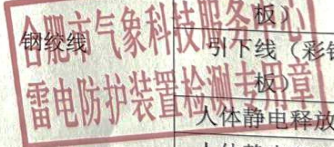 合肥市气象科技服务中心
雷电防护装置检测专用章
钢绞线
板）
引下线（彩钢
板）
人体静电释放